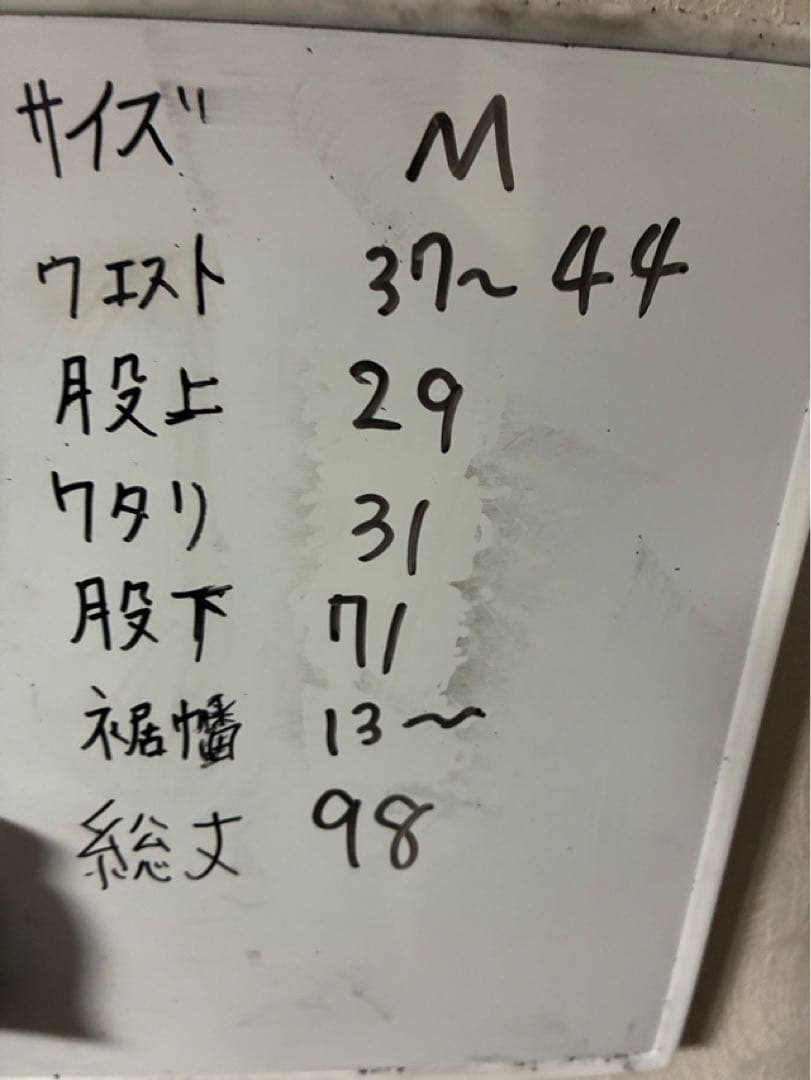 サイズ M
ウエスト 37~44
股上 29
ワタリ 31
股下 71
裾幡 13~
総丈 98